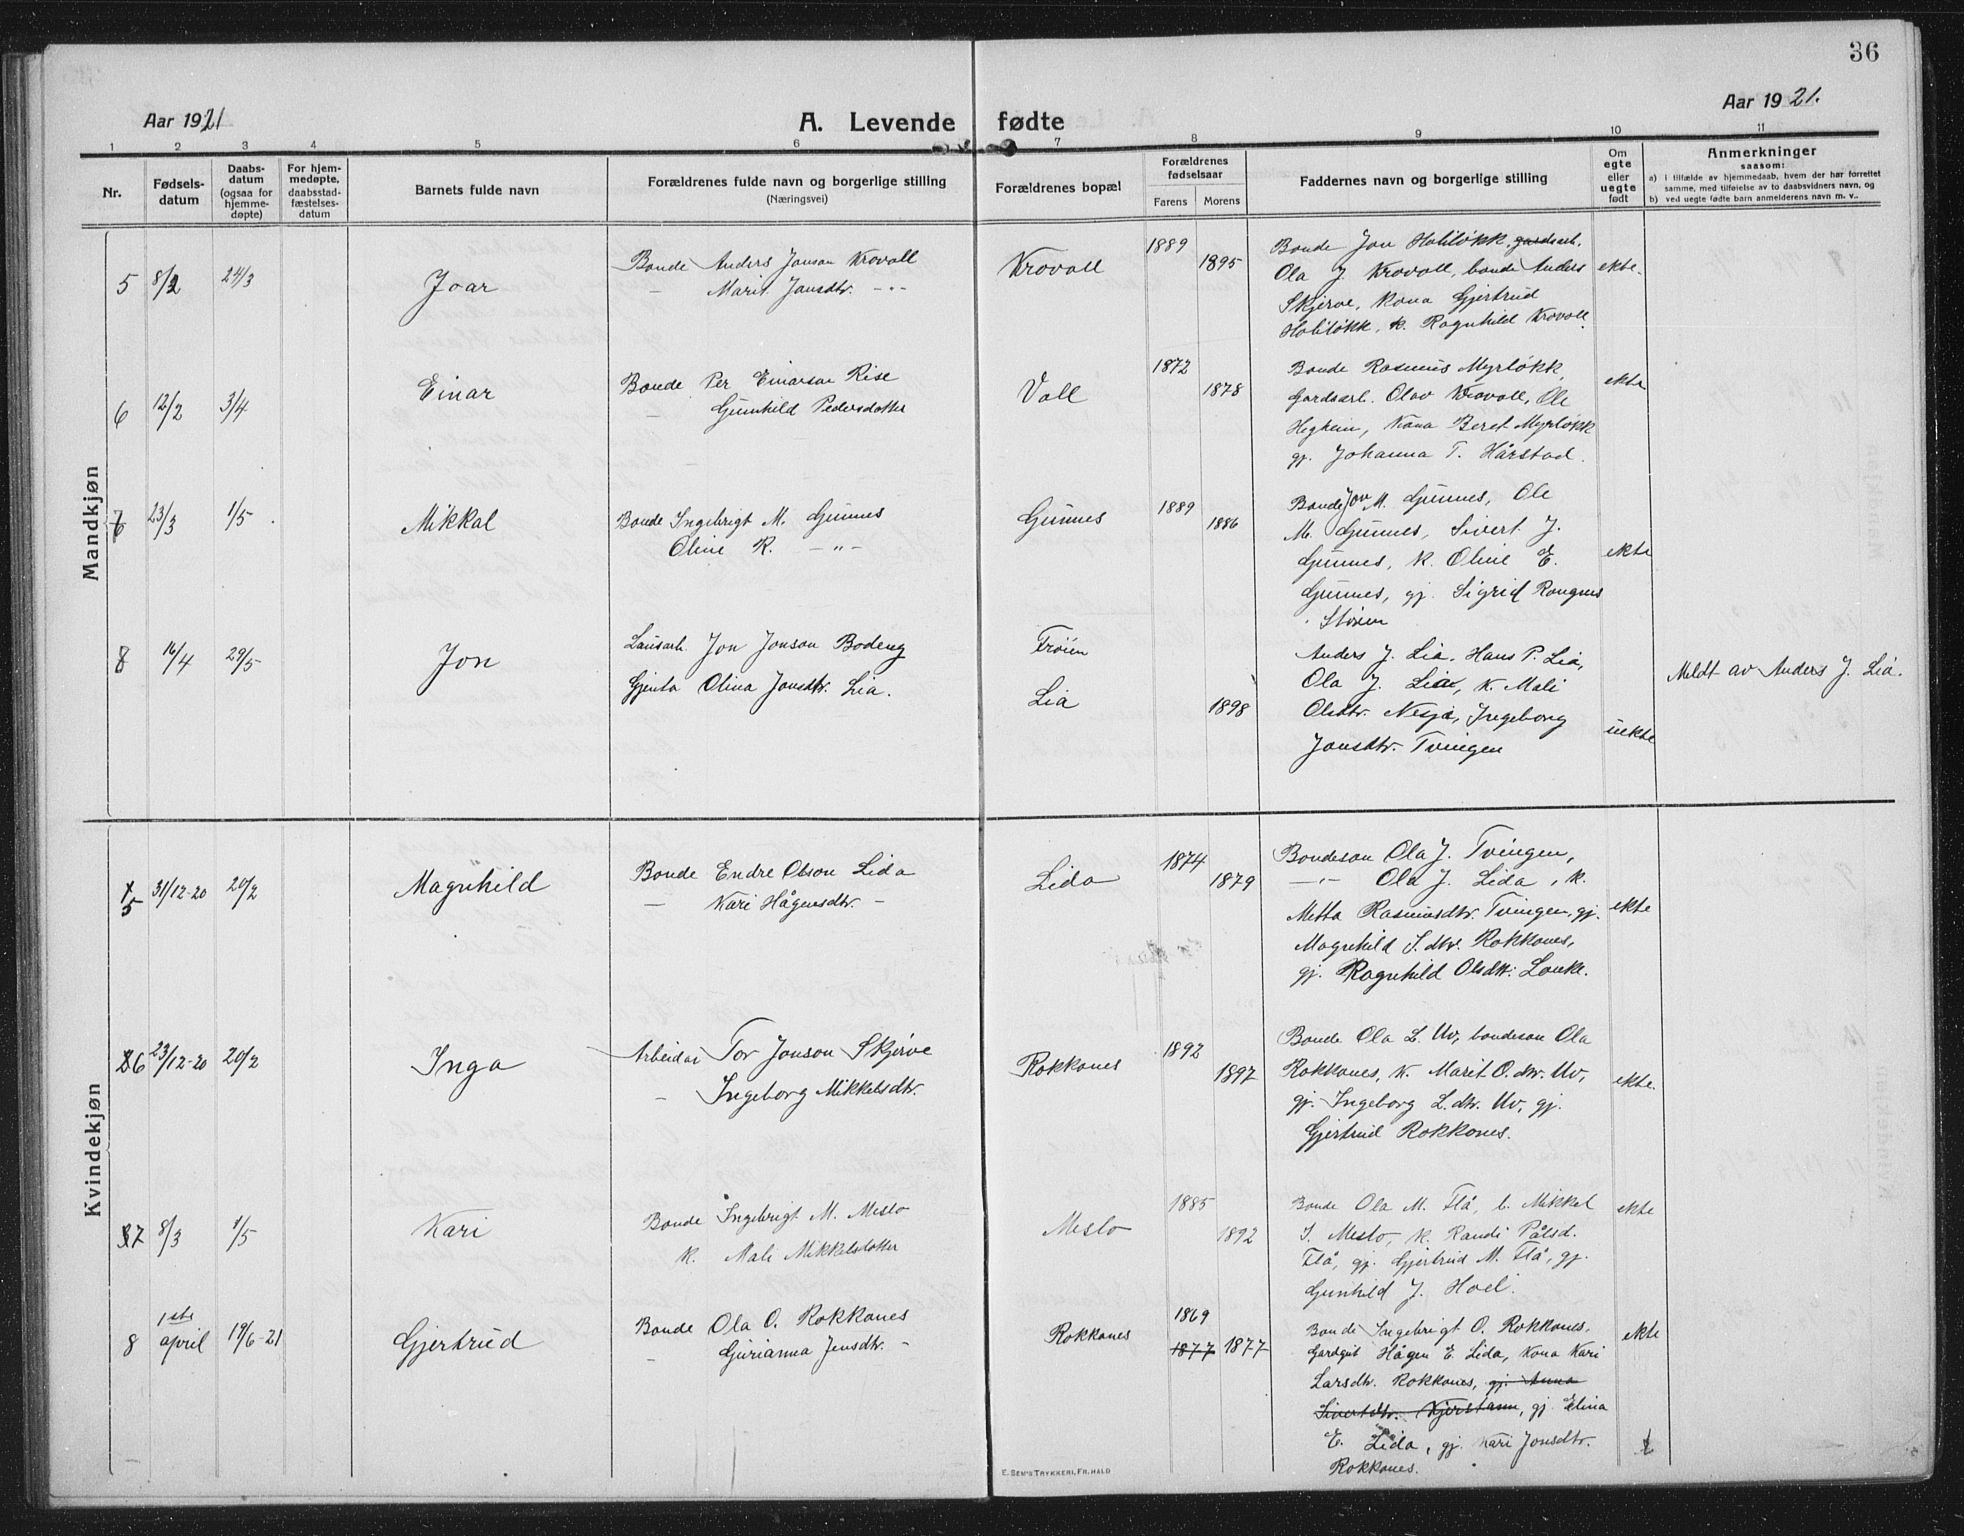 36
Aar 1921
A. Levende fødte
Aar 1921.
1 2 3 4 5 6 7 8 9 10 11
Nr.
Fødsels-
datum
Daabs-
datum
(ogsaa for
hjemme-
døpte)
For hjem-
medøpte,
daabsstad-
fæstelses-
datum
Barnets fulde navn
Forældrenes fulde navn og borgerlige stilling
(Næringsvei)
Forældrenes bopæl
Forældrenes
fødselsaar
Farens Morens
Faddernes navn og borgerlige stilling
Om
egte
eller
uegte
født
Anmerkninger
saasom:
a) i tilfælde av hjemmedaab, hvem der har forrettet
samme, med tilføielse av to daabsvidners navn, og
b) ved uegte fødte barn anmelderens navn m. v..
Mandkjøn
5 8/2 24/3 Joar
Bonde Anders Jonson Krovoll
— Marit Jonsdtr. -"-
Krovoll 1889 1895
Bonde Jon Holiløkk, gardsarb.
Ola J. Krovoll, bonde Anders
Skjerve, kona Gjertrud
Holiløkk, k. Ragnhild Krovoll.
ekte.
6 12/2 3/4 Einar
Bonde Per Einarson Rise
— Gunhild Pedersdotter
Voll 1872 1878
Bonde Rasmus Myrløkk,
gardsarb. Olav Krovoll, Ole
Hegheim, kona Beret Myrløkk
gj. Johanna T. Hårstad.
ekte
7 23/3 1/5 Mikkal
Bonde Ingebrigt M. Gunnes
Oline R. -"-
Gunnes 1889 1886
Bonde Jon M. Gunnes, Ole
M. Gunnes, Sivert J.
Gunnes, k. Oline E.
Gunnes, gj. Sigrid Rongnes
Støren
ekte
8 16/4 29/5 Jon
Lausarb. Jon Jonson Bodeng
Gjenta Olina Jonsdtr. Lia.
Frøien
Lia 1898
Anders J. Lia, Hans P. Lia,
Ola J. Lia, k. Mali
Olsdtr. Nesja, Ingeborg
Jonsdtr. Tvingen
uekte
Meldt av Anders J. Lia.
Kvindekjøn
5 31/12-20 20/2 Magnhild
Bonde Endre Olson Lida
— Kari Hågensdtr. -
Lida 1874 1879
Bondeson Ola J. Tvingen,
-"- Ola J. Lida, k.
Metta Rasmusdtr. Tvingen, gj.
Magnhild I. dtr. Rokkones,
gj. Ragnhild Olsdtr. Lonke.
ekte
6 23/12-20 20/2 Inga
Arbeidar Tor Jonson Skjerve
— Ingeborg Mikkelsdtr.
Rokkones 1892 1897
Bonde Ola L. Uv, bondeson Ola
Rokkones, k. Marit O. dtr. Uv,
gj. Ingeborg L. dtr. Uv, gj.
Gjertrud Rokkones.
ekte.
7 8/3 1/5 Kari
Bonde Ingebrigt M. Meslo
k. Mali Mikkelsdotter
Meslo 1885 1892
Bonde Ola M. Flå, b. Mikkel
I. Meslo, k. Randi Pålsd.
Flå, gj. Gjertrud M. Flå, gj.
Gunhild J. Hoel.
ekte
8 1ste april 19/6-21 Gjertrud
Bonde Ola O. Rokkones
— Gurianna Jensdtr. -
Rokkones 1869
1877 1877
Bonde Ingebrigt O. Rokkones,
Gardgut Hågen E. Lida, kona Kari
Larsdtr. Rokkones, gj. Anna
Sivertsdtr. Kjerstann, gj. Elina
E. Lida, gj. Kari Jonsdtr.
Rokkones.
ekte
E. SEM'S TRYKKERI, FR.HALD